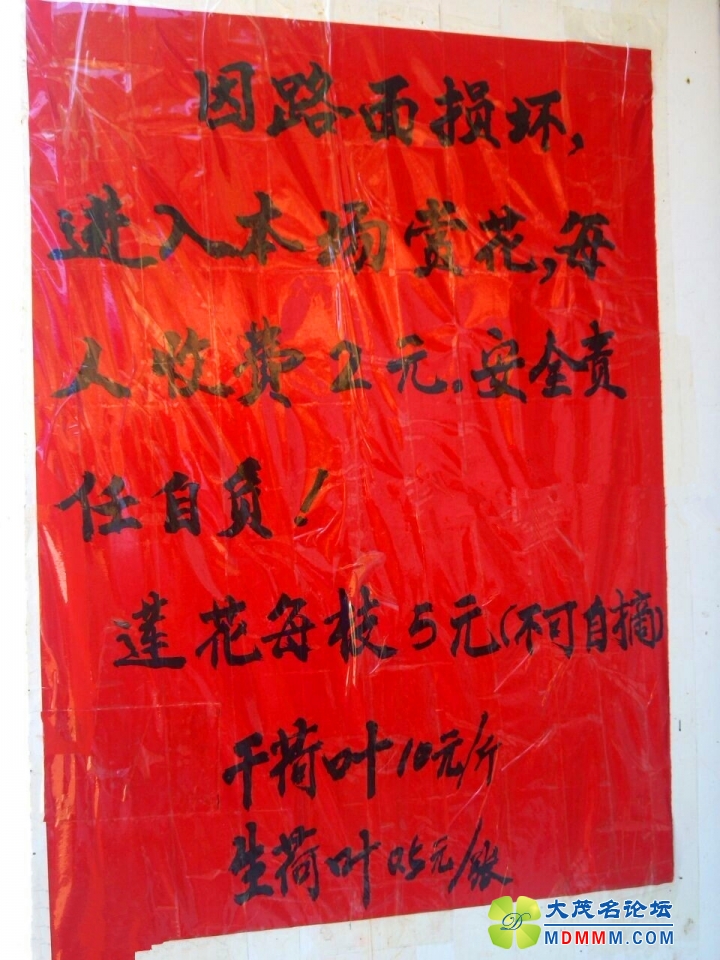 因路面损坏,
进入本场赏花,每
人收费2元.安全责
任自负!
莲花每枝5元(不可自摘)
干荷叶10元/斤
生荷叶0.5元/张
大茂名论坛
MDMMM.COM